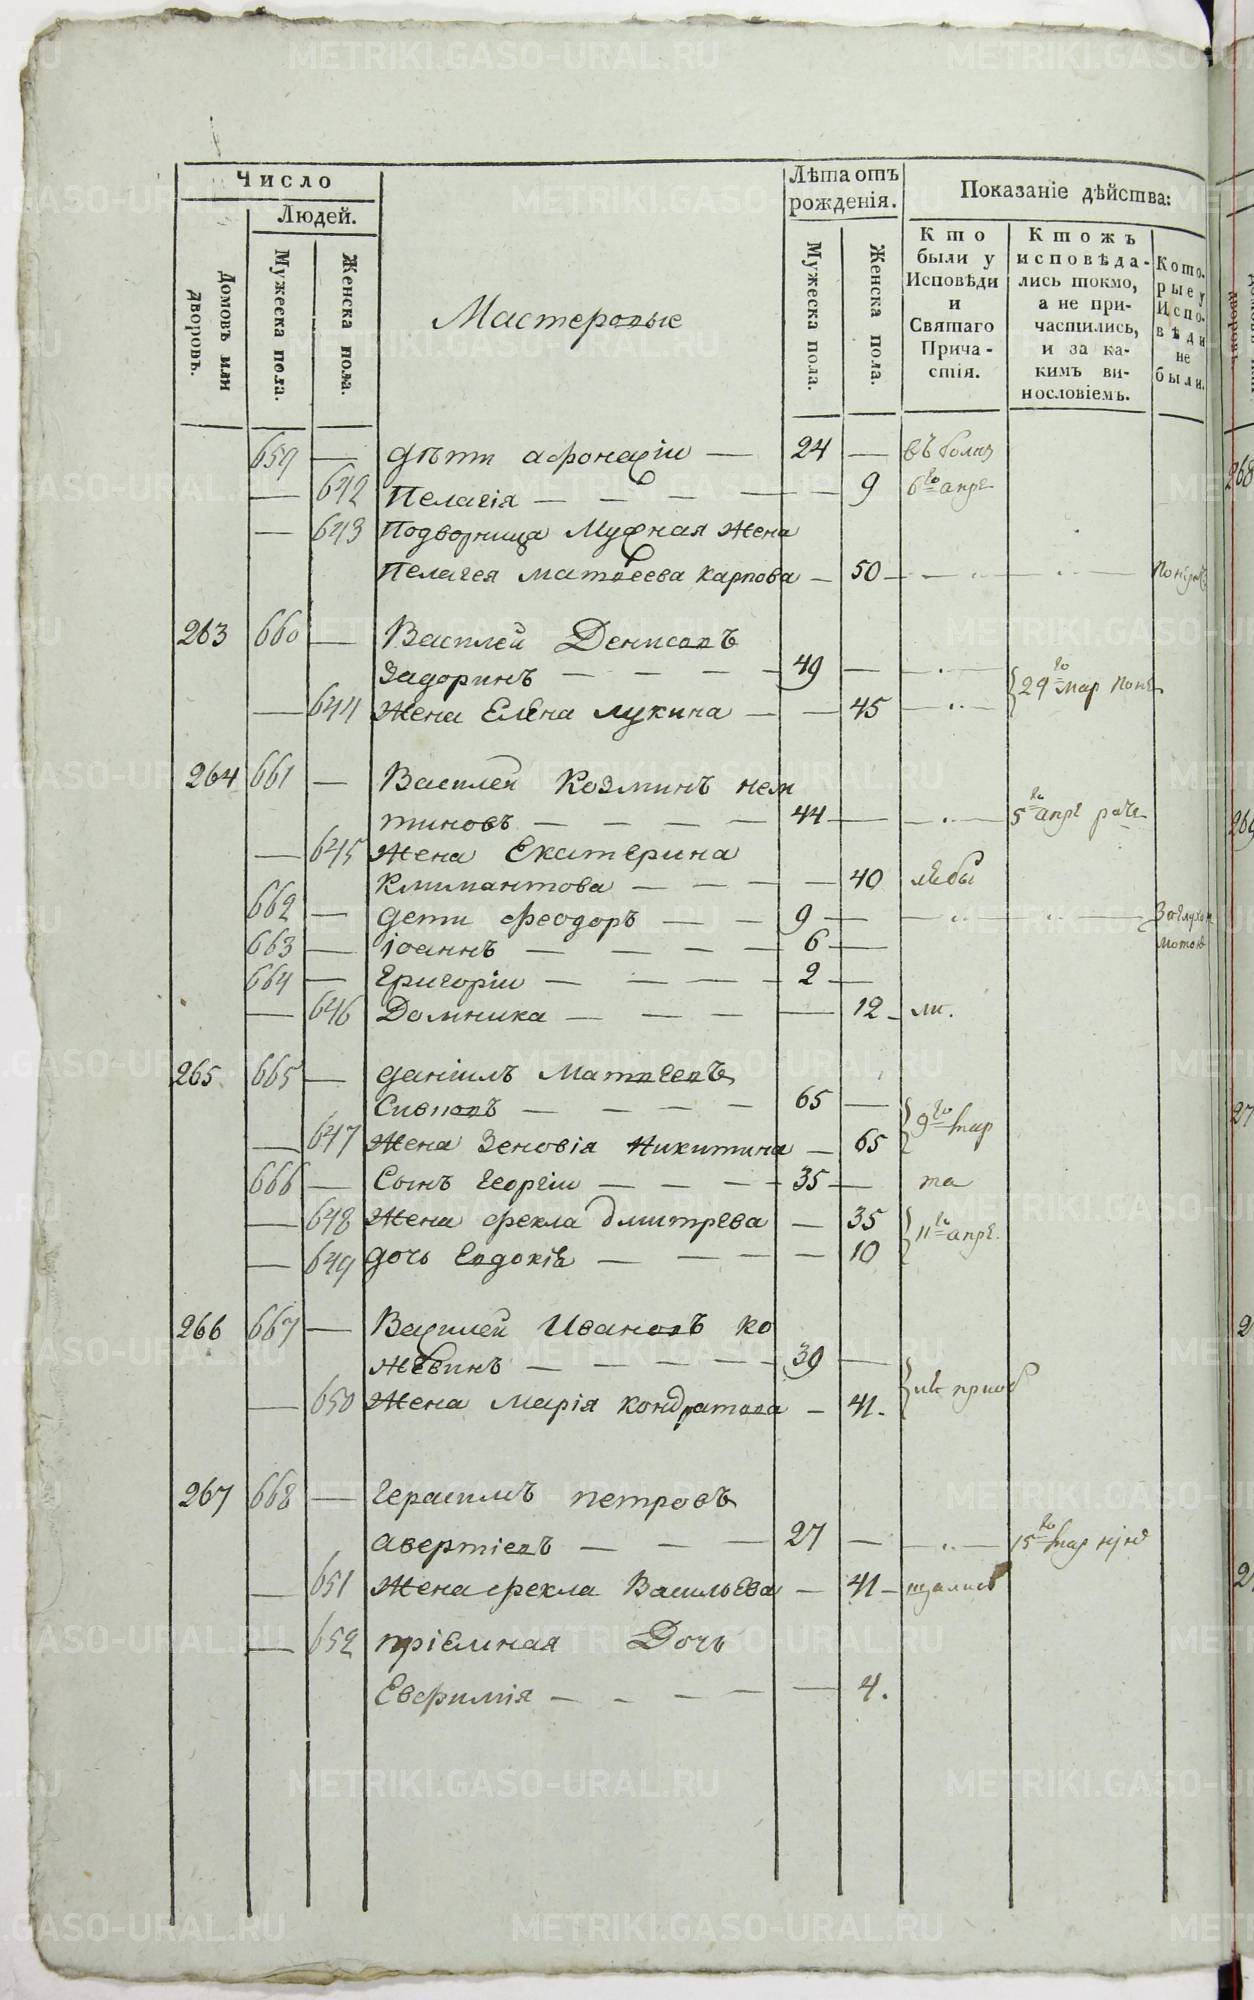 Число
Людей.
Домовъ или дворовъ.
Мужеска пола.
Женска пола.
Мастеровые
Лѣта отъ рожденія.
Мужеска пола.
Женска пола.
Показаніе дѣйства:
Кто были у Исповѣди и Святаго Причастія.
Ктожъ исповѣдались токмо, а не причастились, и за какимъ винословіемъ.
Которые у Исповѣди не были.
659 — дѣти афонасіи — 24 —
— 642 Пелагія — — — — — 9 6го апре
— 643 Подворница Мужная Жена
Пелагея матвеева карпова — 50
263 660 — Василей Денисовъ
Задоринъ — — — — 49 — 29го мар
— 644 Жена Елена лукина — — 45
264 661 — Василей Козминъ
тиновъ — — — — 44 — 5го апре
— 645 Жена Екатерина
Климантова — — — — 40
662 — дети феодоръ — — 9 —
663 — іоаннъ — — — — 6 —
664 — Григоріи — — — — 2 —
— 646 Домника — — — — 12
265 665 — даніилъ Матвеевъ
— — — — 65 — 9го мар
— 647 Жена Зеновія Никитина — 65
666 — Сынъ Георгіи — — — — 35 — та
— 648 Жена фекла дмитрева — 35 11го апре.
— 649 дочь Евдокіѣ — — — — 10
266 667 — Василей Ивановъ ко
жевинъ — — — — — 39 —
— 650 Жена Марія кондратова — 41.
267 668 — Герасимъ петровъ
авертіевъ — — — 27 — 15го мар
— 651 Жена фекла Васильева — 41
— 652 пріемная Дочь
Евфимія — — — — — 4.